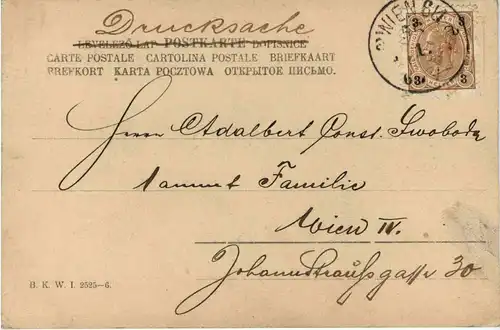 Drucksache
LEVELEZŐ-LAP POSTKARTE DOPISNICE
CARTE POSTALE CARTOLINA POSTALE BRIEFKAART
BREFKORT KARTA POCZTOWA ОТКРЫТОЕ ПИСЬМО.
WIEN
3
3
Herrn Adalbert Const. Swoboda
sammt Familie
Wien IV.
Johann Straußgasse 30
B. K. W. I. 2525-6.